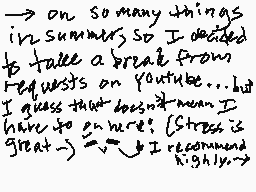 → on so many things
in summer, so I decided
to take a break from
requests on youtube... but
I guess that doesn't mean I
have to on here! (Stress is
great →) I recommend
highly. →